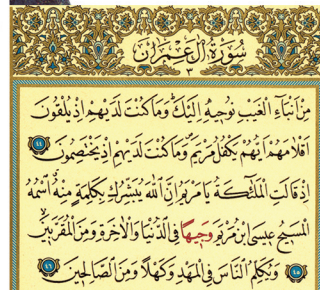 سورة آل عمران
٣
مِنْ أَنْبَاءِ الْغَيْبِ نُوحِيهِ إِلَيْكَ وَمَا كُنْتَ لَدَيْهِمْ إِذْ يُلْقُونَ
أَقْلَامَهُمْ أَيُّهُمْ يَكْفُلُ مَرْيَمَ وَمَا كُنْتَ لَدَيْهِمْ إِذْ يَخْتَصِمُونَ ٤٤
إِذْ قَالَتِ الْمَلٰئِكَةُ يَا مَرْيَمُ إِنَّ اللّٰهَ يُبَشِّرُكِ بِكَلِمَةٍ مِنْهُ اسْمُهُ
الْمَسِيحُ عِيسَى ابْنُ مَرْيَمَ وَجِيهًا فِي الدُّنْيَا وَالْاٰخِرَةِ وَمِنَ الْمُقَرَّبِينَ
٤٥ وَيُكَلِّمُ النَّاسَ فِي الْمَهْدِ وَكَهْلًا وَمِنَ الصَّالِحِينَ ٤٦